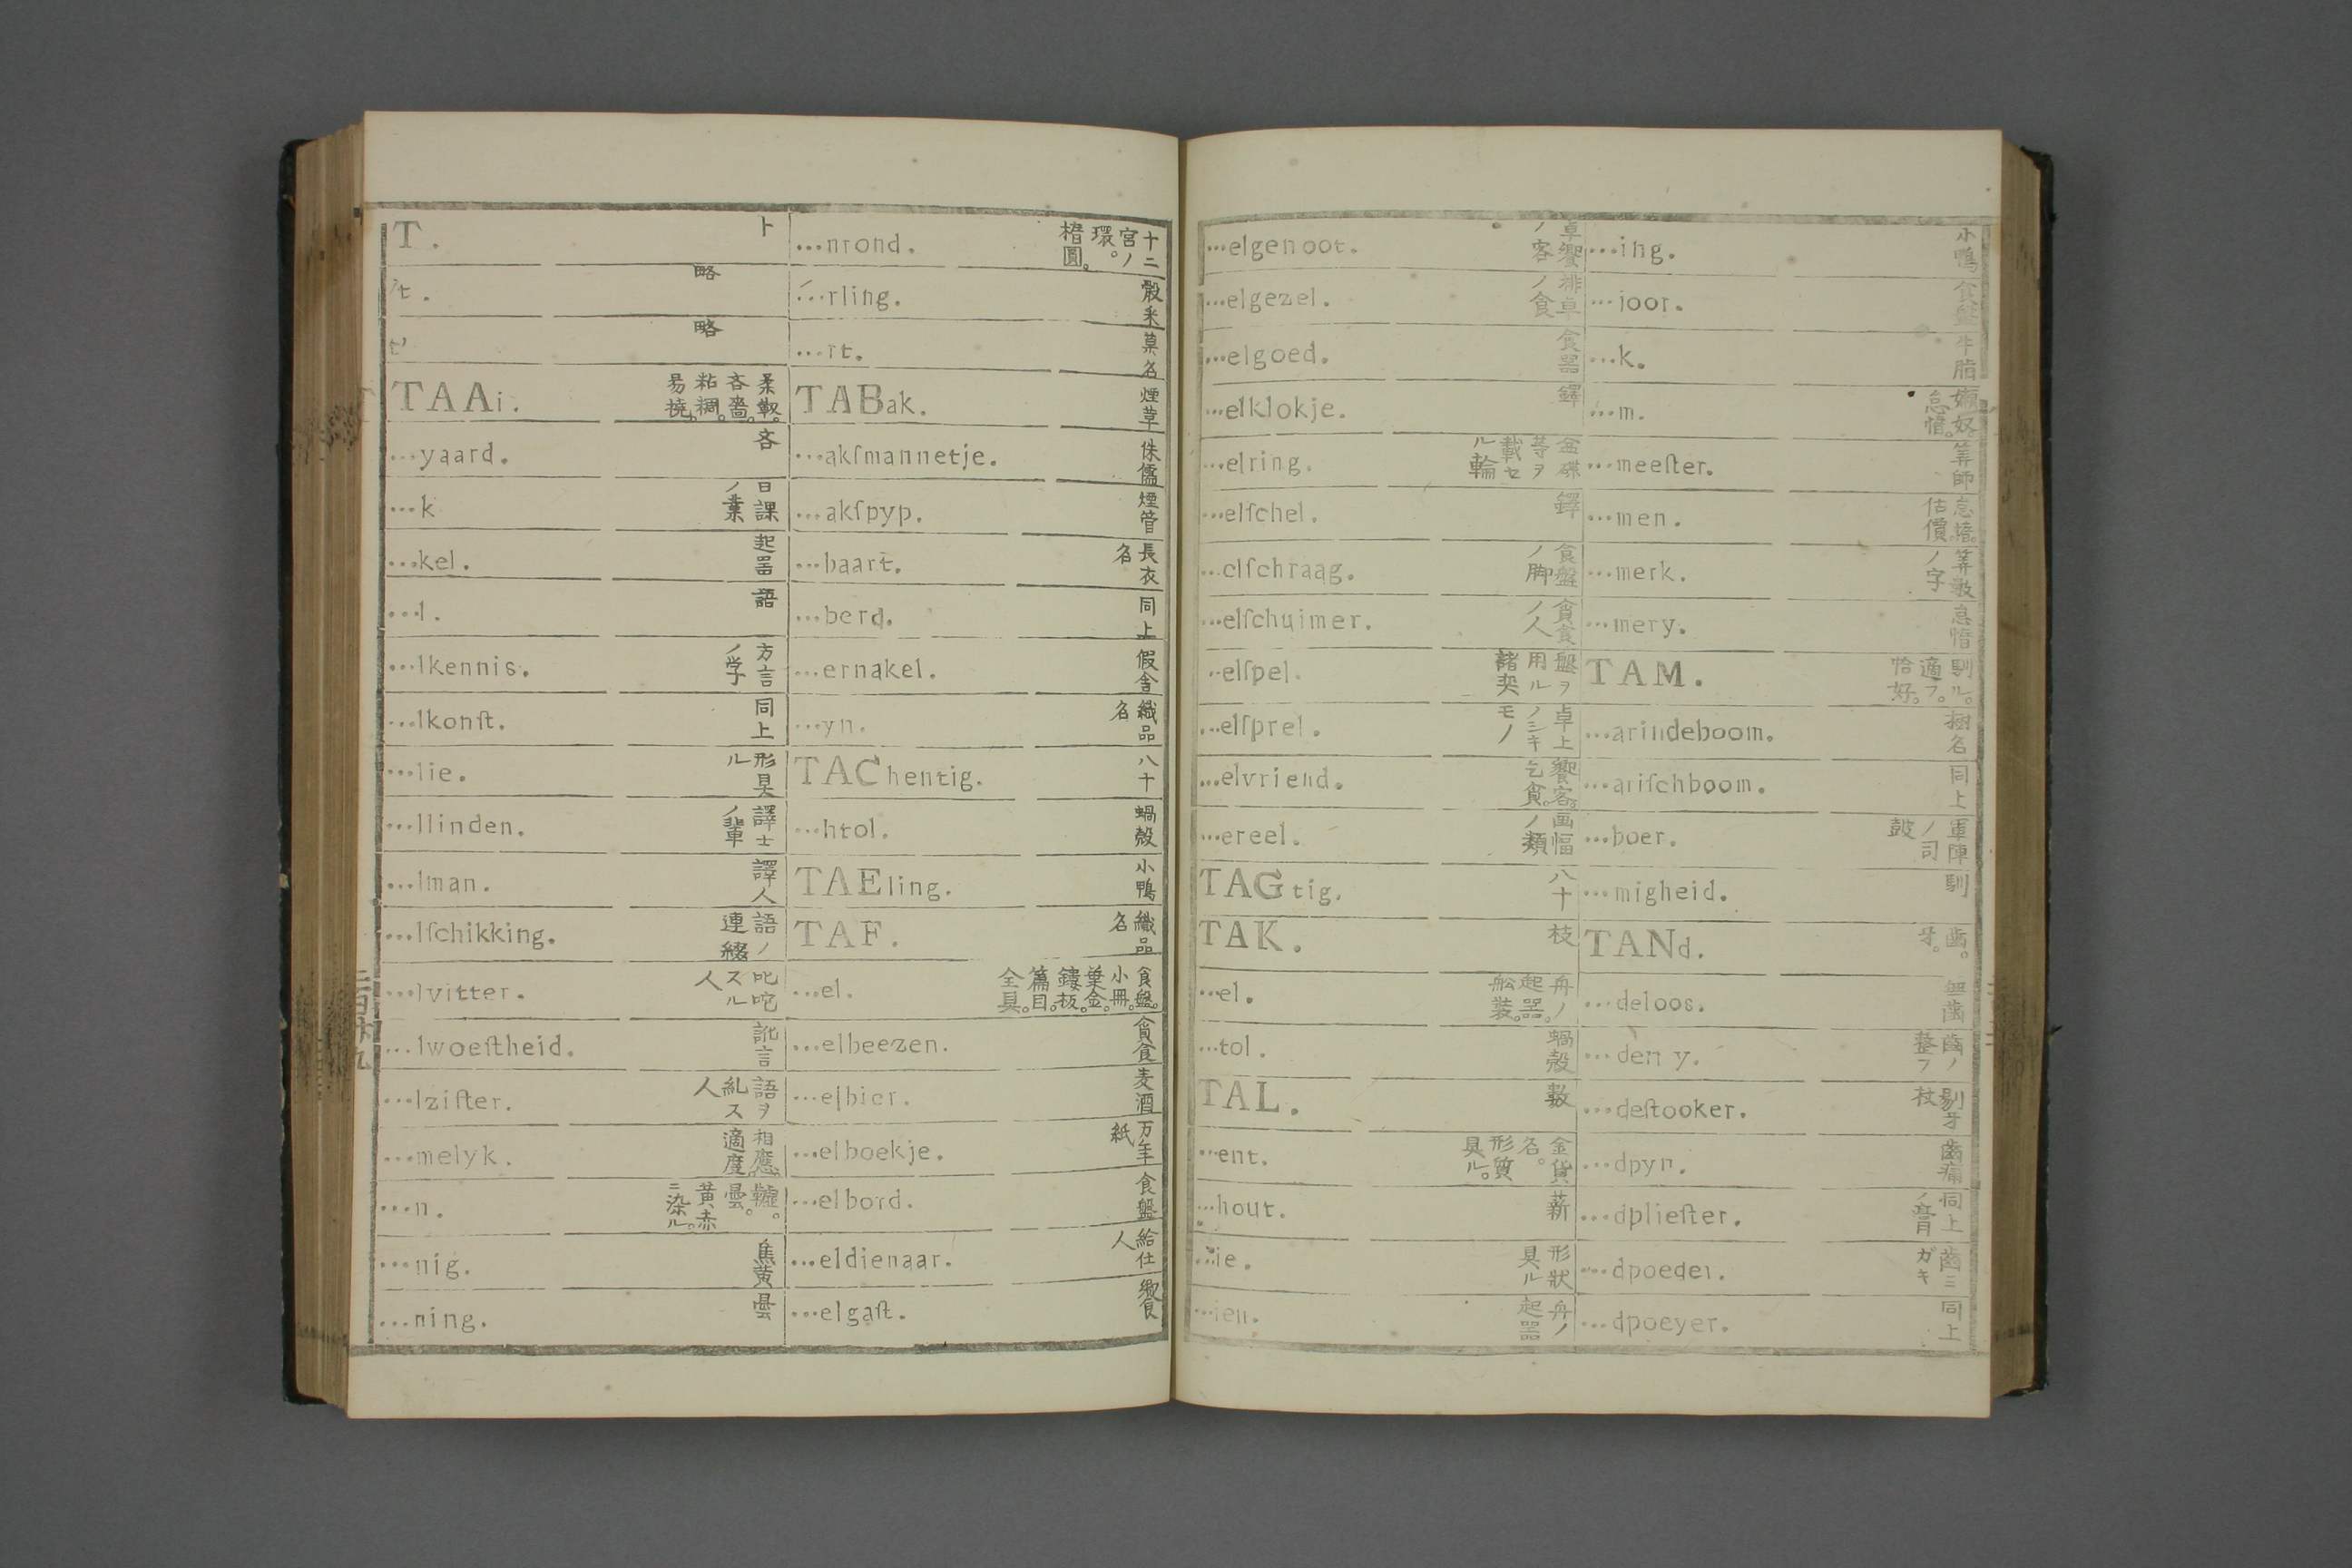 T. ト
't. 略
t' 略
TAAi. 柔靱。吝嗇。粘稠。易撓。
...yaard. 吝
...k 日課ノ業
...kel. 起器
...l. 語
...lkennis. 方言ノ学
...lkonſt. 同上
...lie. 形具ル
...llinden. 譯士ノ輩
...lman. 譯人
...lſchikking. 語ノ連綴
...lvitter. 叱咜スル人
...lwoeſtheid. 訛言
...lziſter. 語ヲ糺ス人
...melyk. 相應。適度。
...n. 曇。黄赤ニ染ル。
...nig. 焦黄
...ning. 曇
...nrond. 十二宮ノ環。楕圓。
...rling. 骰釆
...rt. 菓名
TABak. 煙草
...akſmannetje. 侏儒
...akſpyp. 煙管
...baart. 長衣名
...berd. 同上
...ernakel. 假舎
...yn. 織品名
TAChentig. 八十
...htol. 蝸殻
TAEling. 小鴨
TAF. 織品名
...el. 食盤。小冊。彙金。鏤板。篇目。全具。
...elbeezen. 貪食
...elbier. 麦酒
...elboekje. 万年紙
...elbord. 食盤
...eldienaar. 給仕人
...elgaſt. 饗
...elgenoot. 卓饗ノ客
...elgezel. 排卓ノ食
...elgoed. 食器
...elklokje. 鐸
...elring. 盆碟等ヲ載セル輪
...elſchel. 鐸
...elſchraag. 食盤ノ脚
...elſchuimer. 貪食ノ人
...elſpel. 盤ヲ用ル諸
...elſprei. 卓上ノシキモノ
...elvriend. 饗客。乞食。
...ereel. 画幅ノ類
TAGtig. 八十
TAK. 枝
...el. 舟ノ起器。舩装。
...tol. 蝸殻
TAL. 数
...ent. 金貨名。形質具ル。
...hout. 薪
...ie. 形状具ル
...ien. 舟ノ起器
...ing. 小鴨
...joor. 食盤
...k. 牛脂
...m. 嬾奴。怠惰。
...meeſter. 筭師
...men. 怠惰。估價。
...merk. 筭数ノ字
...mery. 怠惰
TAM. 馴ル。適フ。恰好。
...arindeboom. 樹名
...ariſchboom. 同上
...boer. 軍陣ノ司鼓
...migheid. 馴
TANd. 齒。牙。
...deloos. 無齒
...den y. 齒ノ整フ
...deſtooker. 剔牙杖
...dpyn. 齒痛
...dplieſter. 同上ノ膏
...dpoeder. 齒ミガキ
...dpoeyer. 同上